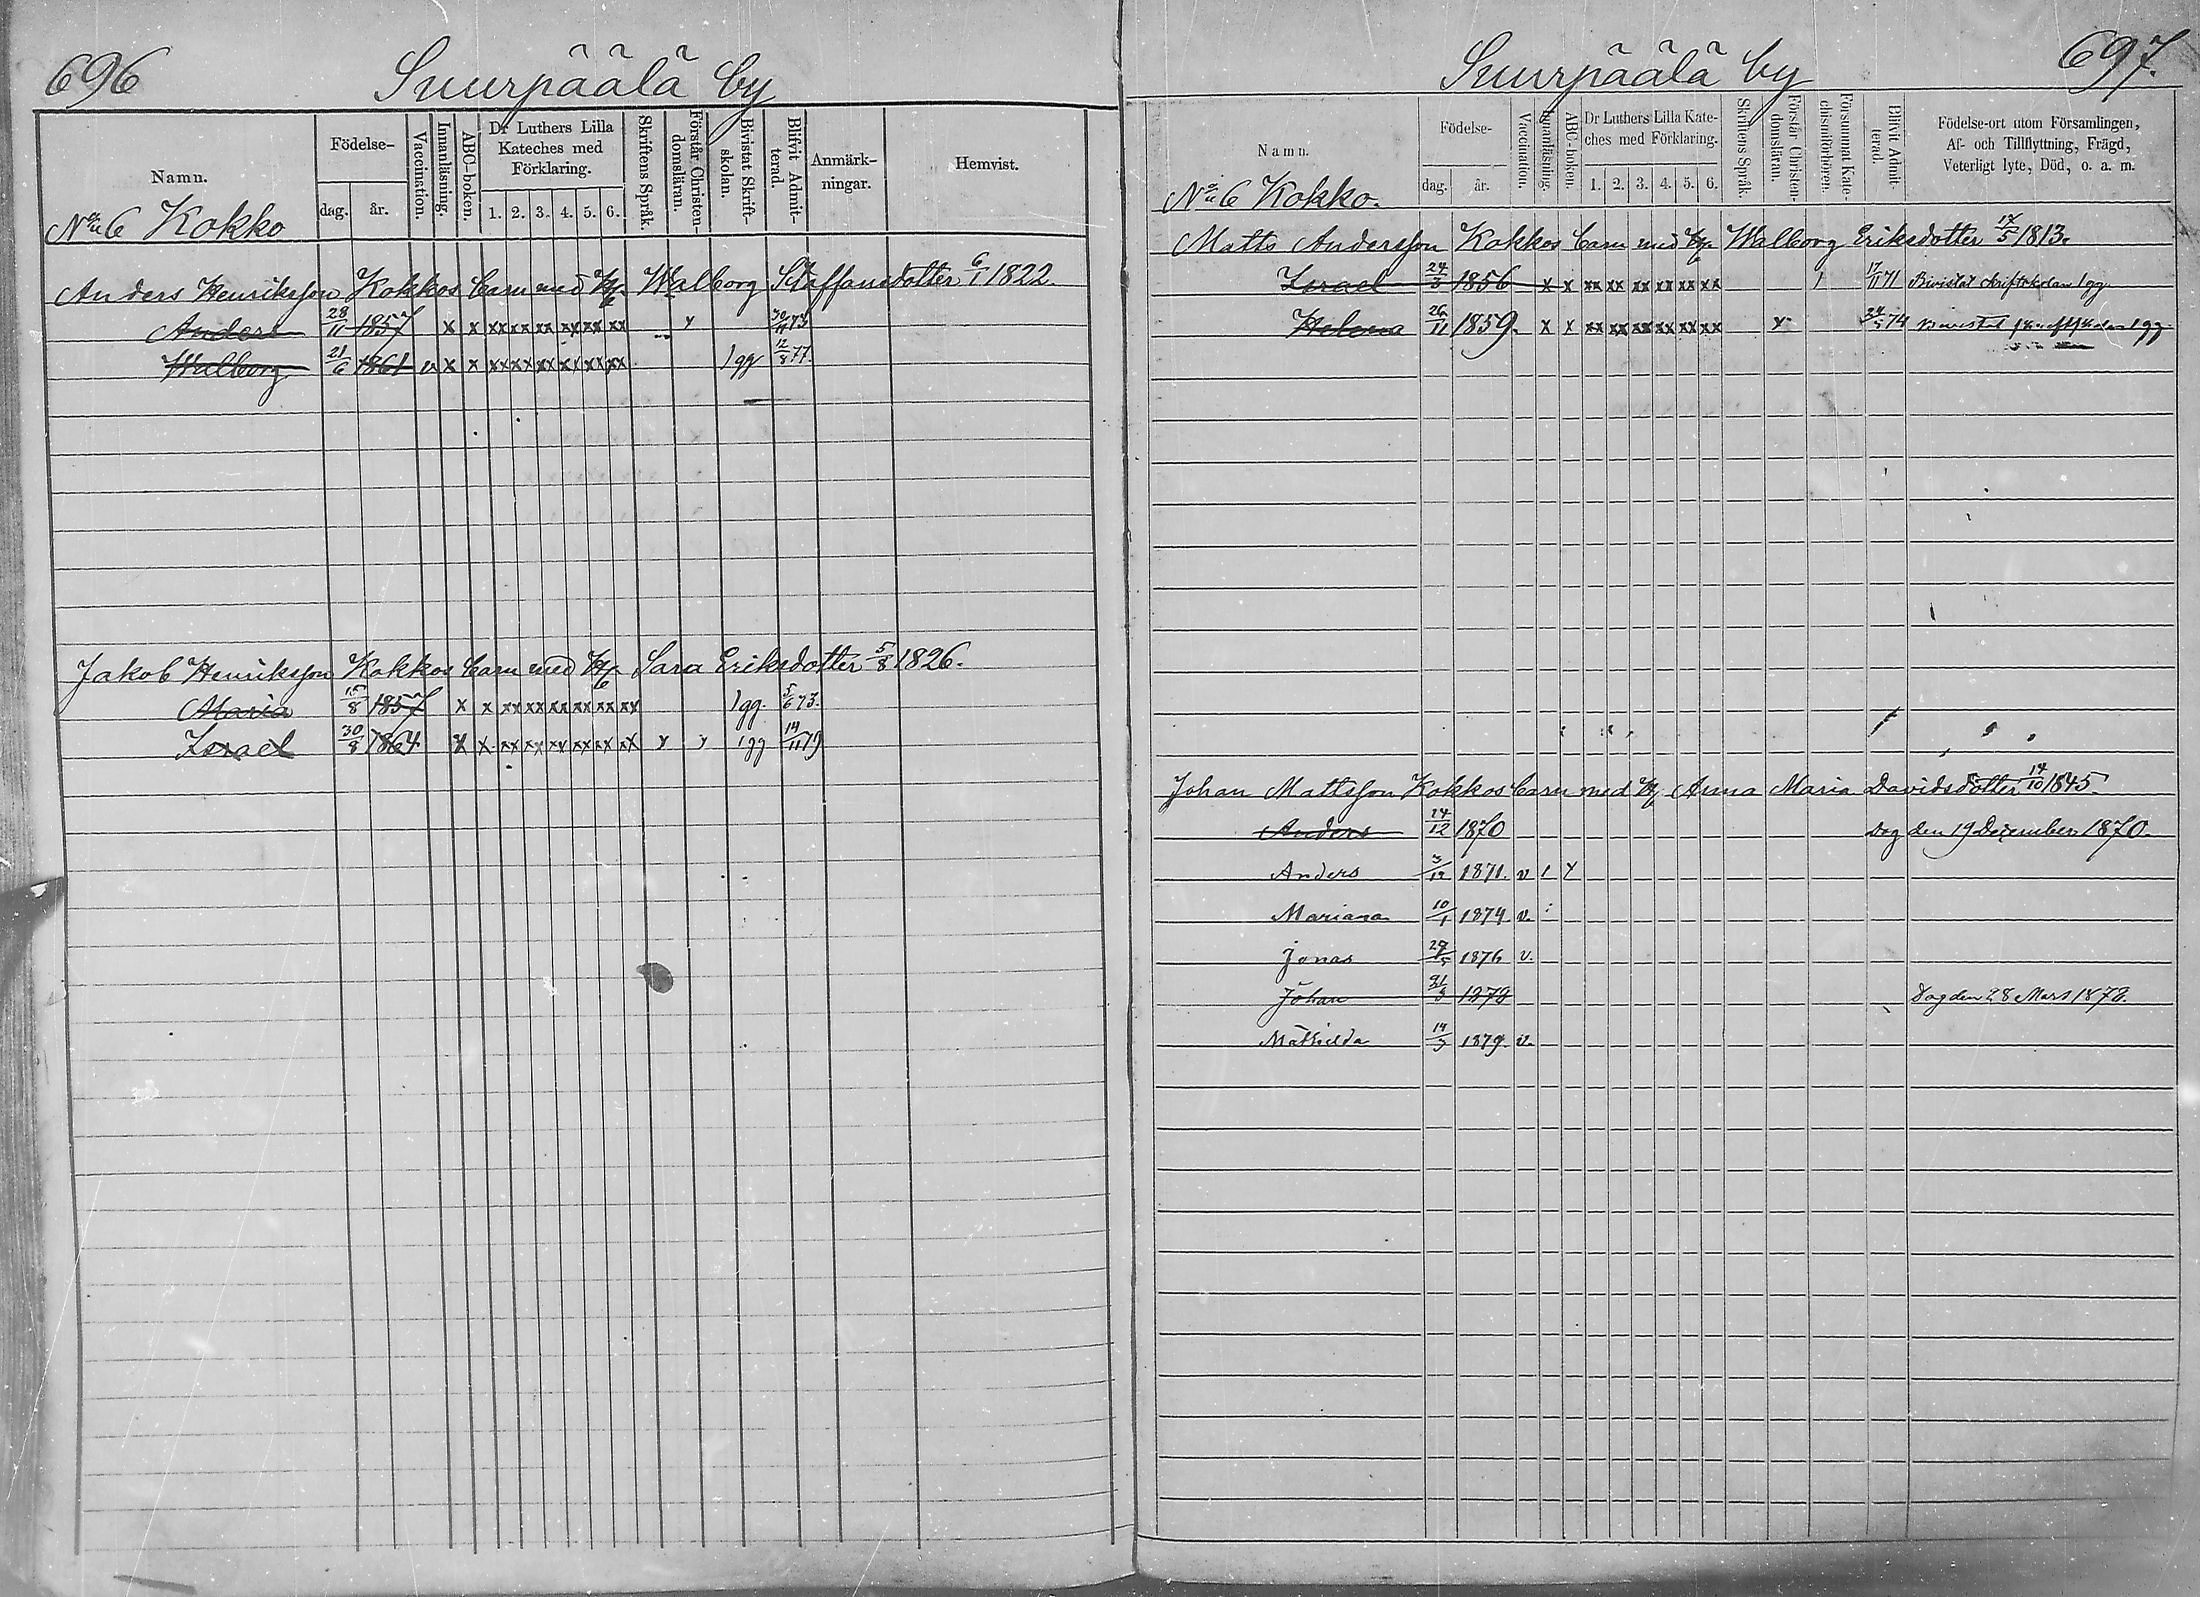 696
Suurpäälä by
Namn.
Födelse-
dag.
år.
Vaccination.
Innanläsning.
ABC-boken.
Dr Luthers Lilla
Kateches med
Förklaring.
1. 2. 3. 4. 5. 6.
Skriftens Språk.
Förstår Christen-
domsläran.
Bivistat Skrift-
skolan.
Blifvit Admit-
terad.
Anmärk-
ningar.
Hemvist.
No 6 Kokko
Anders Henriksson Kokkos barn med H. Walborg Staffansdotter 6/1 1822.
Anders 28/11 1857 x x xx xx xx xx xx xx y 30/11 73
Walborg 21/6 1861 v x x xx xx xx xx xx xx 1 gg 12/8 77.
Jakob Henriksson Kokkos barn med H. Sara Eriksdotter 5/8 1826.
Maria 15/8 1857 x x xx xx xx xx xx xx 1 gg. 5/6 73.
Israel 30/8 1864 x x xx xx xx xx xx xx y y 1 gg 14/11 79
Suurpäälä by
697.
Namn.
Födelse-
dag.
år.
Vaccination.
Innanläsning.
ABC-boken.
Dr Luthers Lilla Kate-
ches med Förklaring.
1. 2. 3. 4. 5. 6.
Skriftens Språk.
Förstår Christen-
domsläran.
Försummat Kate-
chismiförhören.
Blifvit Admit-
terad.
Födelse-ort utom Församlingen,
Af- och Tillflyttning, Frägd,
Veterligt lyte, Död, o. a. m.
No 6 Kokko.
Matts Andersson Kokkos barn med H. Walborg Eriksdotter 1813.
Israel 24/3 1856 x x xx xx xx xx xx xx 1 17/11 71 Bivistat skriftskolan 1 gg.
Helena 26/11 1859. x x xx xx xx xx xx xx y 24/5 74 Bivistat skriftskolan 1 gg.
Johan Mattsson Kokkos barn med H. Anna Maria Davidsdotter 14/10 1845.
Anders 1870 Dog den 19 December 1870.
Anders 3/12 1871. v 1 y
Mariana 10/1 1874 v.
Jonas 1876 v.
Johan 21/3 1878 Dog den 28 Mars 1878.
Mathilda 1879. v.